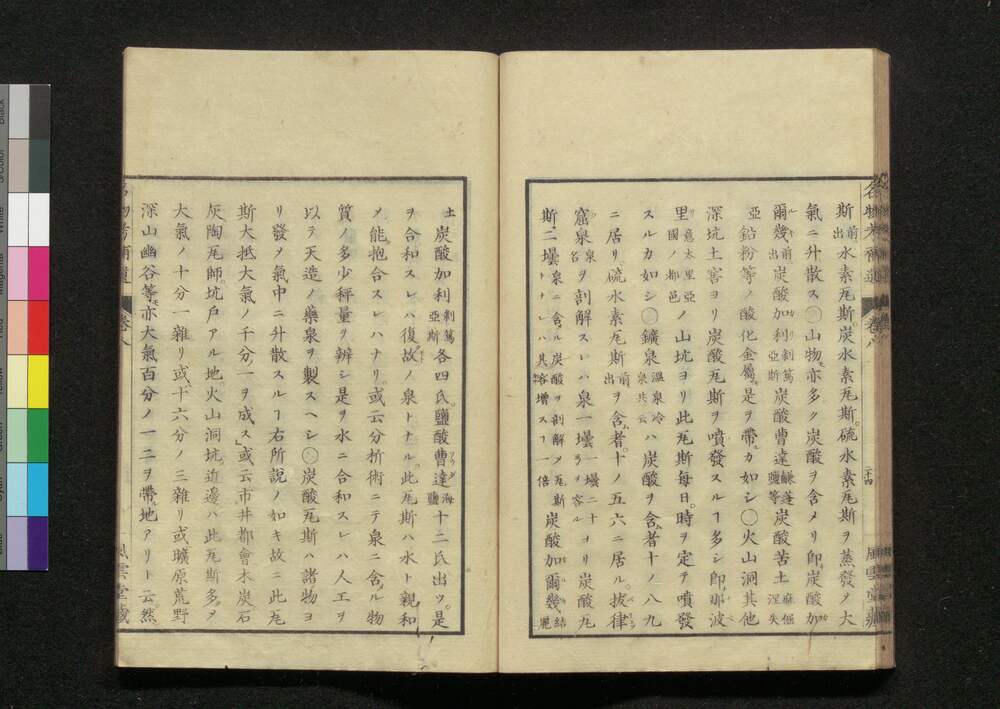 斯前出水素瓦斯。炭水素瓦斯。硫水素瓦斯ヲ蒸發ノ大
氣ニ升散ス〇山物亦多ク炭酸ヲ含メリ即炭酸加
爾幾前出炭酸加利剥篤亜斯炭酸曹達鹹蓬鹽等炭酸苦土麻倔涅失
亞鉛粉等ノ酸化金屬是ヲ帶ルカ如シ〇火山洞其他
深坑土窖ヨリ炭酸瓦斯ヲ噴發スルヿ多シ即那波
里意太里亞國ノ都邑ノ山坑ヨリ此瓦斯每日時ヲ定テ噴發
スルカ如シ〇鑛泉溫泉冷泉共云ハ炭酸ヲ含ム者十ノ八九
ニ居リ硫水素瓦斯前出ヲ含ム者十ノ五六ニ居ル。抜律
窟泉泉名ヲ剖解スレハ泉一壜一壜ニ十ヲ容ルヨリ炭酸瓦
斯二壜泉ニ含ル炭酸ヲ剖解メ瓦斯トナレハ其容增スヿ一倍炭酸加爾幾結麗
土炭酸加利剥篤亜斯各四氏。鹽酸曹達海鹽十二氏出ツ。是
ヲ合和スレハ復故ノ泉トナル此瓦斯ハ水ト親和
メ能抱合スレハナリ。或云分析術ニテ泉ニ含ル物
質ノ多少秤量ヲ辨シ是ヲ水ニ合和スレハ人工ヲ
以テ天造ノ藥泉ヲ製スヘシ〇炭酸瓦斯ハ諸物ヨ
リ發メ氣中ニ升散スルヿ右所說ノ如キ故ニ此瓦
斯大抵大氣ノ千分ノ一ヲ成ス或云市井都會木炭石
灰陶瓦師ノ坑戸アル地火山洞坑近邊ハ此瓦斯多ク
大氣ノ十分一雜リ或十六分ノ三雜リ或曠原荒野
深山幽谷等モ亦大氣百分ノ一二ヲ帶ル地アリト云然
名物考補遺
卷八
二十四
風雲堂藏